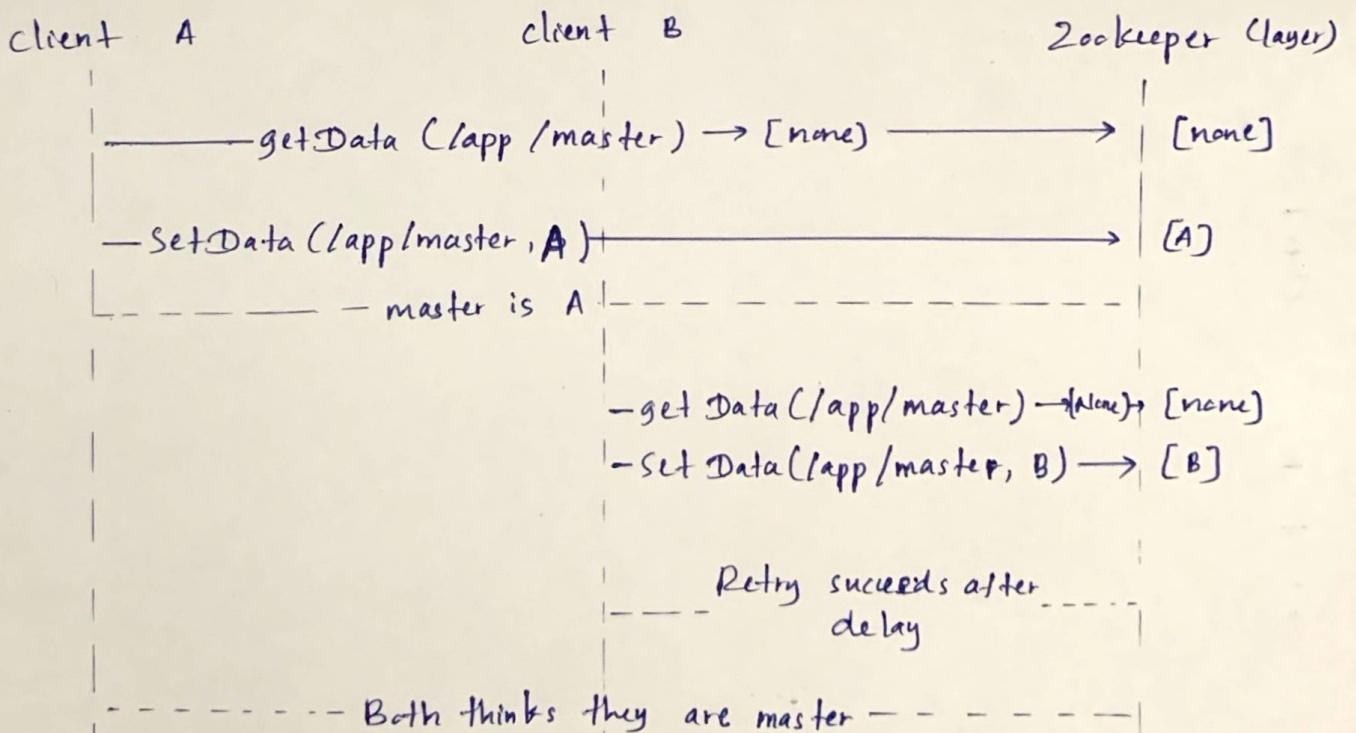 client A client B Zookeeper (layer)
getData (/app/master) → [none] → [none]
SetData (/app/master, A) → [A]
master is A
get Data (/app/master) → [None] → [none]
Set Data (/app/master, B) → [B]
Retry succeeds after
delay
Both thinks they are master